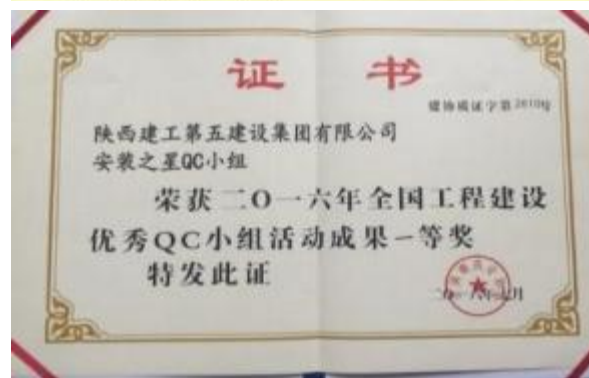 证书
建协质证字第
陕西建工第五建设集团有限公司
安装之星QC小组
荣获二〇一六年全国工程建设
优秀QC小组活动成果一等奖
特发此证